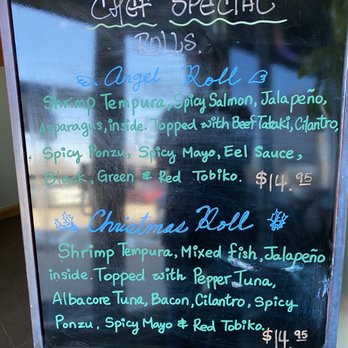 Chef Special
Rolls.
Angel Roll
Shrimp Tempura, Spicy Salmon, Jalapeño,
Asparagus, inside. Topped with Beef Tataki, Cilantro,
Spicy Ponzu, Spicy Mayo, Eel Sauce,
Black, Green & Red Tobiko. $14.95
Christmas Roll
Shrimp Tempura, Mixed fish, Jalapeño
inside. Topped with Pepper Tuna,
Albacore Tuna, Bacon, Cilantro, Spicy
Ponzu, Spicy Mayo & Red Tobiko.
$14.95